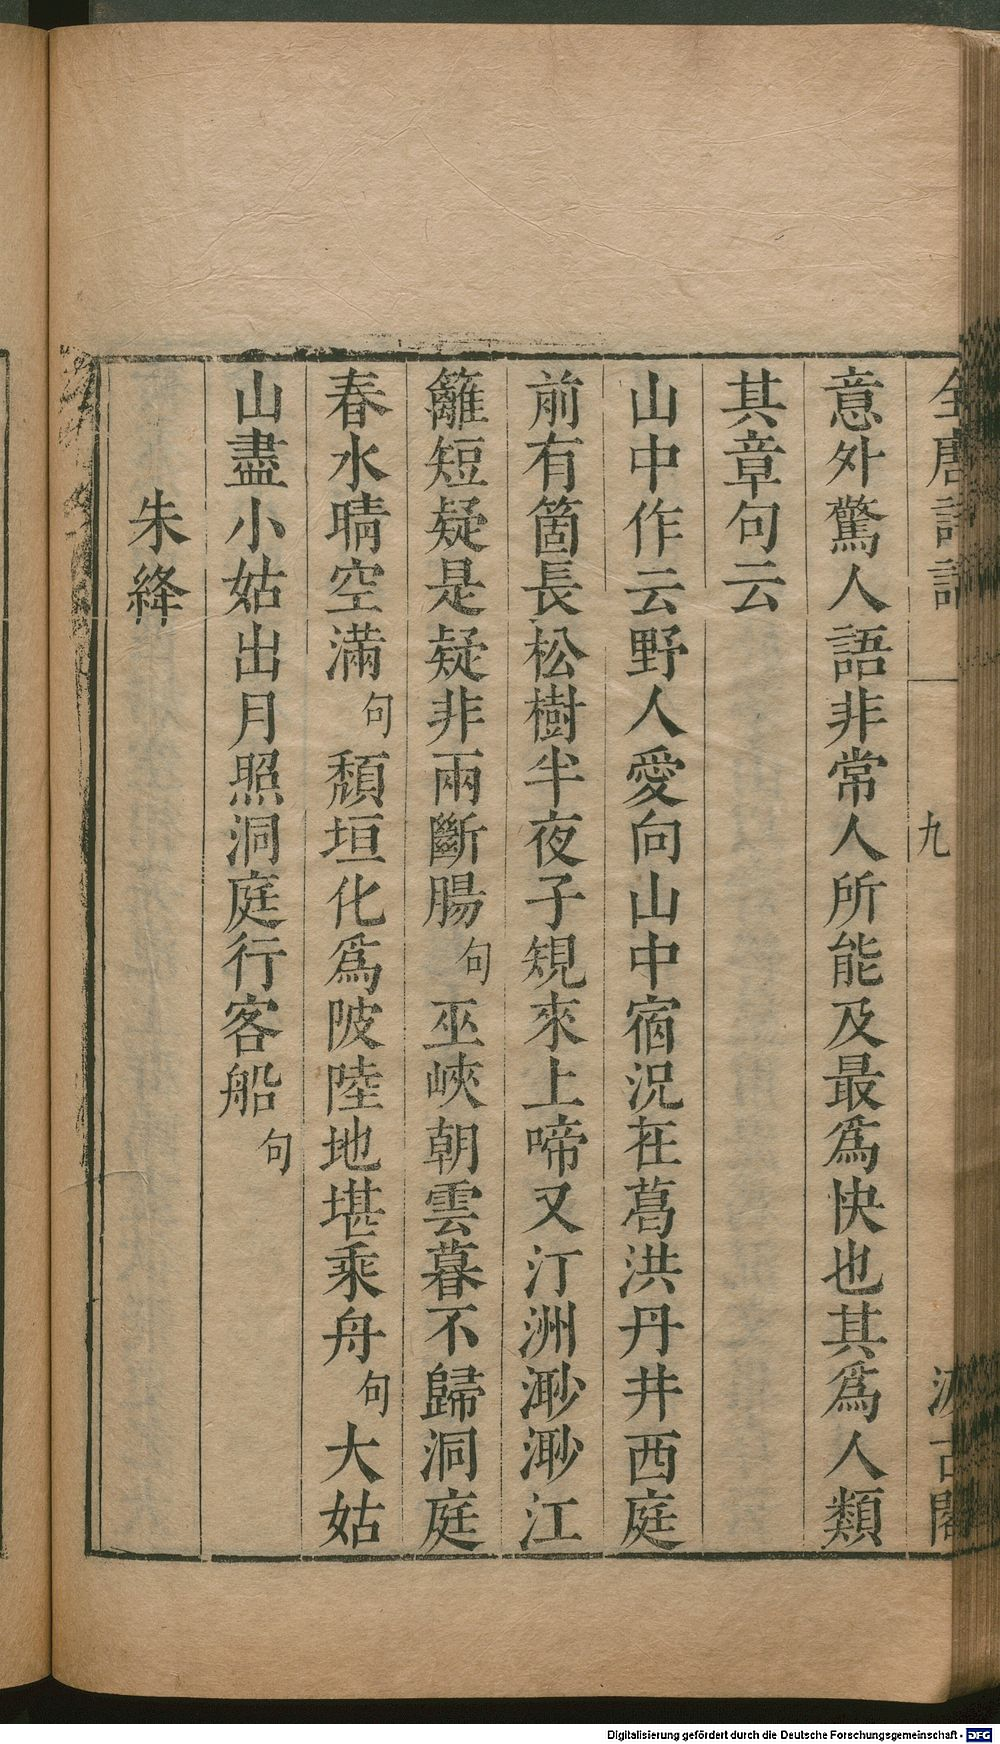 全唐詩話
九
汲古閣
意外驚人語非常人所能及最爲快也其爲人類
其章句云
山中作云野人愛向山中宿況在葛洪丹井西庭
前有箇長松樹半夜子規來上啼又汀洲渺渺江
籬短疑是疑非兩斷腸句巫峽朝雲暮不歸洞庭
春水晴空滿句頹垣化爲陂陸地堪乘舟句大姑
山盡小姑出月照洞庭行客船句
朱絳
Digitalisierung gefördert durch die Deutsche Forschungsgemeinschaft - DFG